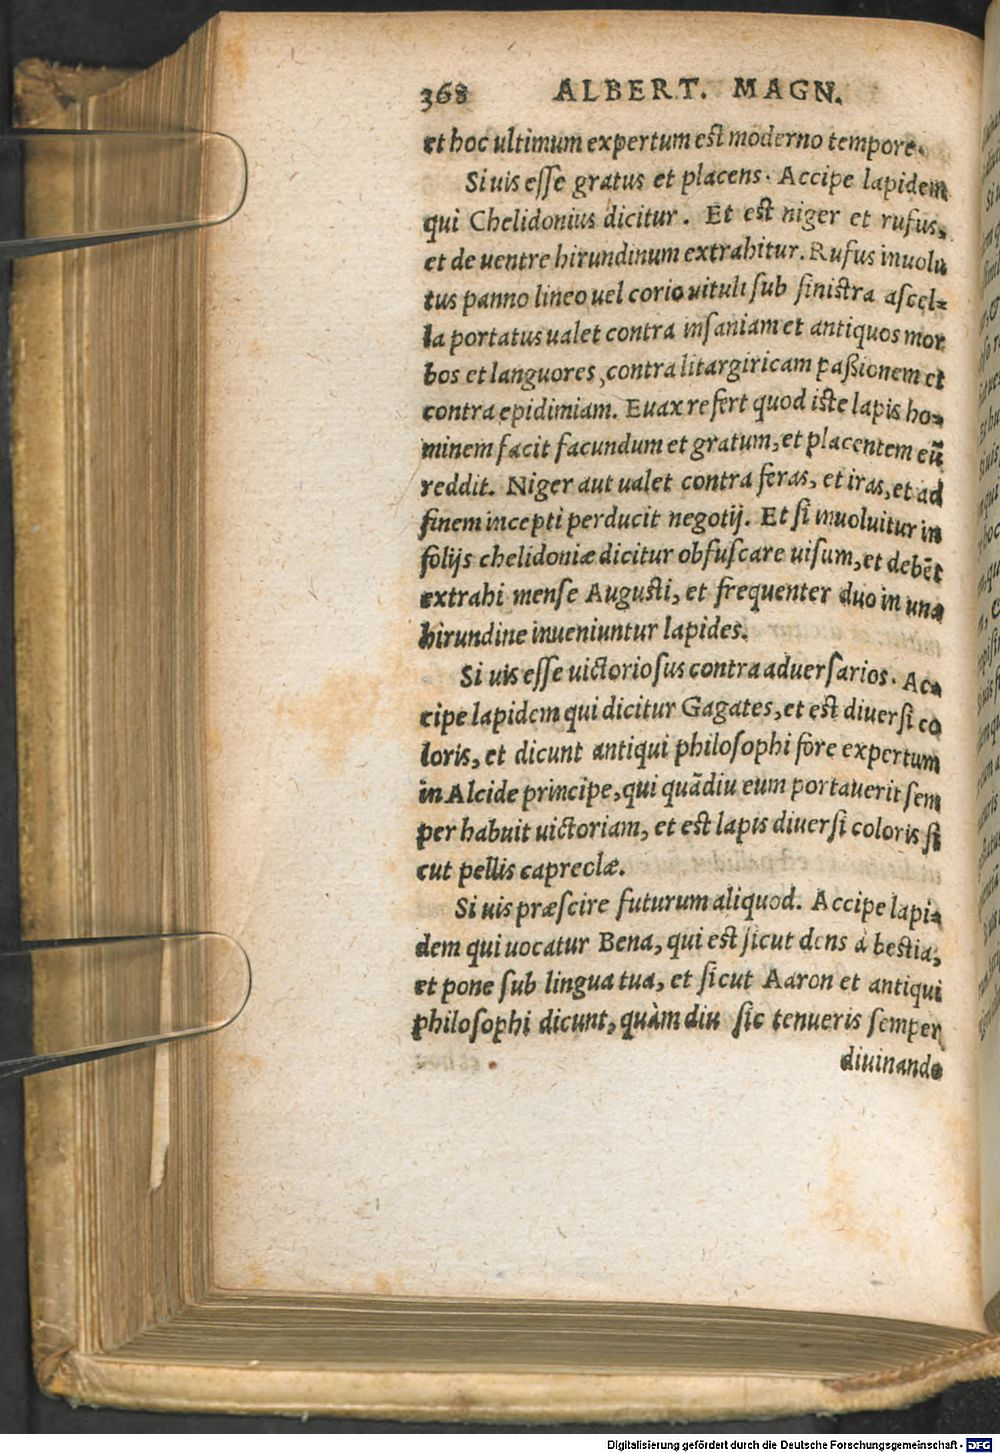 368 ALBERT. MAGN.
et hoc ultimum expertum est moderno tempore.
Si uis esse gratus et placens. Accipe lapidem
qui Chelidonius dicitur. Et est niger et rufus,
et de uentre hirundinum extrahitur. Rufus inuolu
tus panno lineo uel corio uituli sub sinistra ascel=
la portatus ualet contra insaniam et antiquos mor
bos et languores, contra litargiricam paßionem et
contra epidimiam. Euax refert quod iste lapis ho=
minem facit facundum et gratum, et placentem eũ
reddit. Niger aut ualet contra feras, et iras, et ad
finem incepti perducit negotij. Et si inuoluitur in
folijs chelidoniæ dicitur obfuscare uisum, et debẽt
extrahi mense Augusti, et frequenter duo in una
hirundine inueniuntur lapides.
Si uis esse uictoriosus contra aduersarios. Ac=
cipe lapidem qui dicitur Gagates, et est diuersi co
loris, et dicunt antiqui philosophi fore expertum
in Alcide principe, qui quãdiu eum portauerit sem
per habuit uictoriam, et est lapis diuersi coloris si
cut pellis capreolæ.
Si uis præscire futurum aliquod. Accipe lapi=
dem qui uocatur Bena, qui est sicut dens à bestia,
et pone sub lingua tua, et sicut Aaron et antiqui
philosophi dicunt, quàm diu sic tenueris semper
diuinando
Digitalisierung gefördert durch die Deutsche Forschungsgemeinschaft - DFG